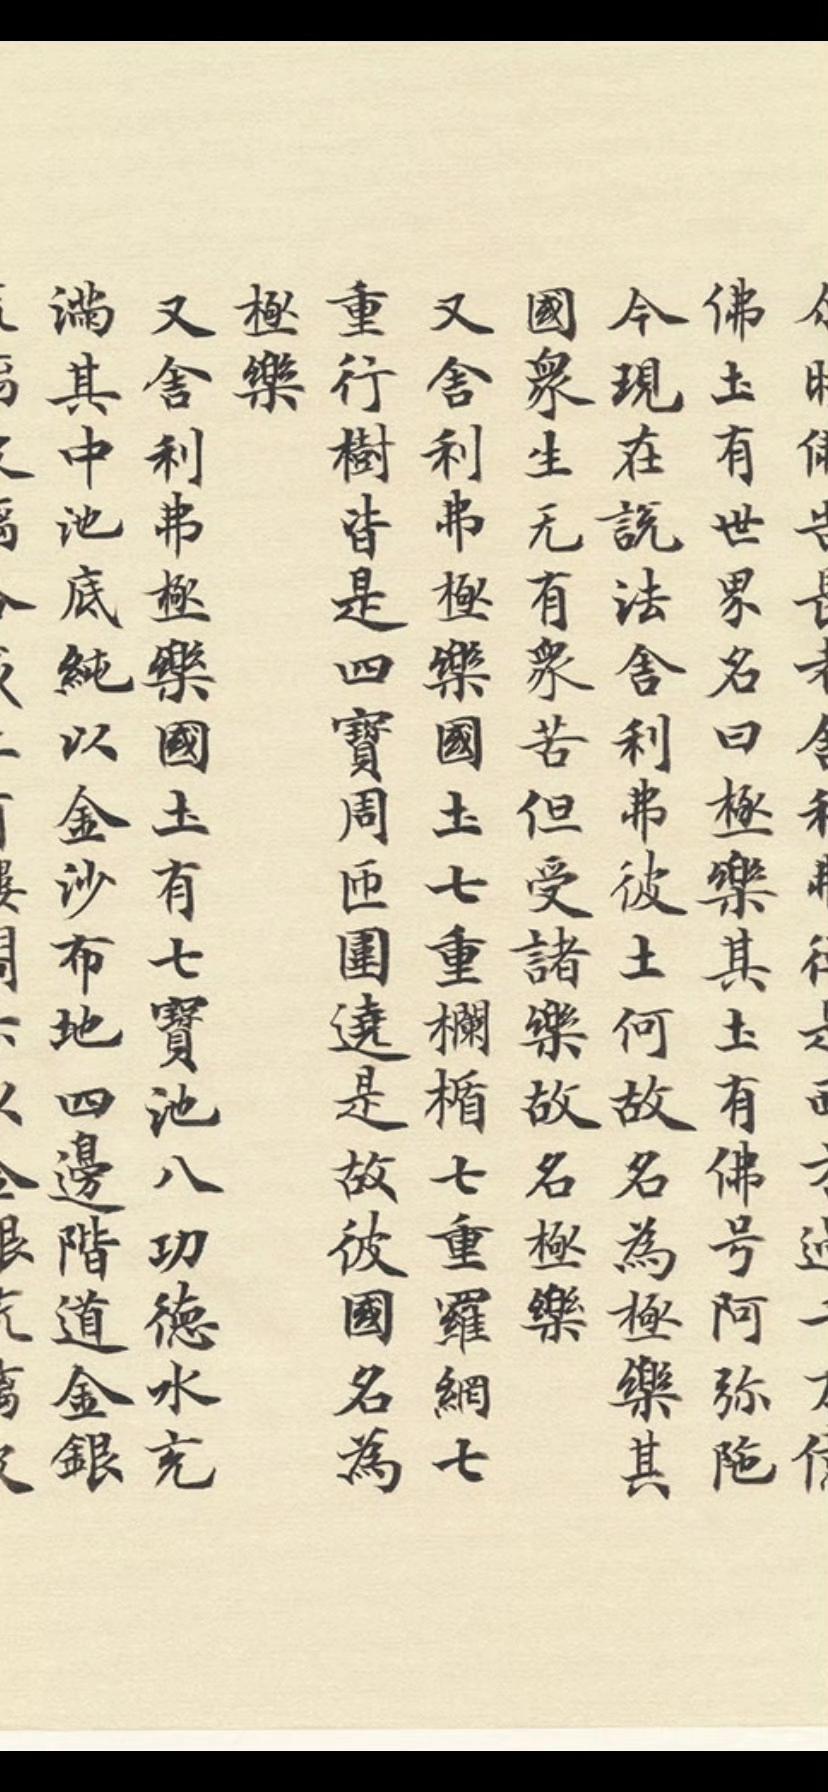 佛土有世界名曰極樂其土有佛号阿弥陁
今現在說法舍利弗彼土何故名為極樂其
國衆生无有衆苦但受諸樂故名極樂
又舍利弗極樂國土七重欄楯七重羅網七
重行樹皆是四寶周匝圍遶是故彼國名為
極樂
又舍利弗極樂國土有七寶池八功德水充
滿其中池底純以金沙布地四邊階道金銀